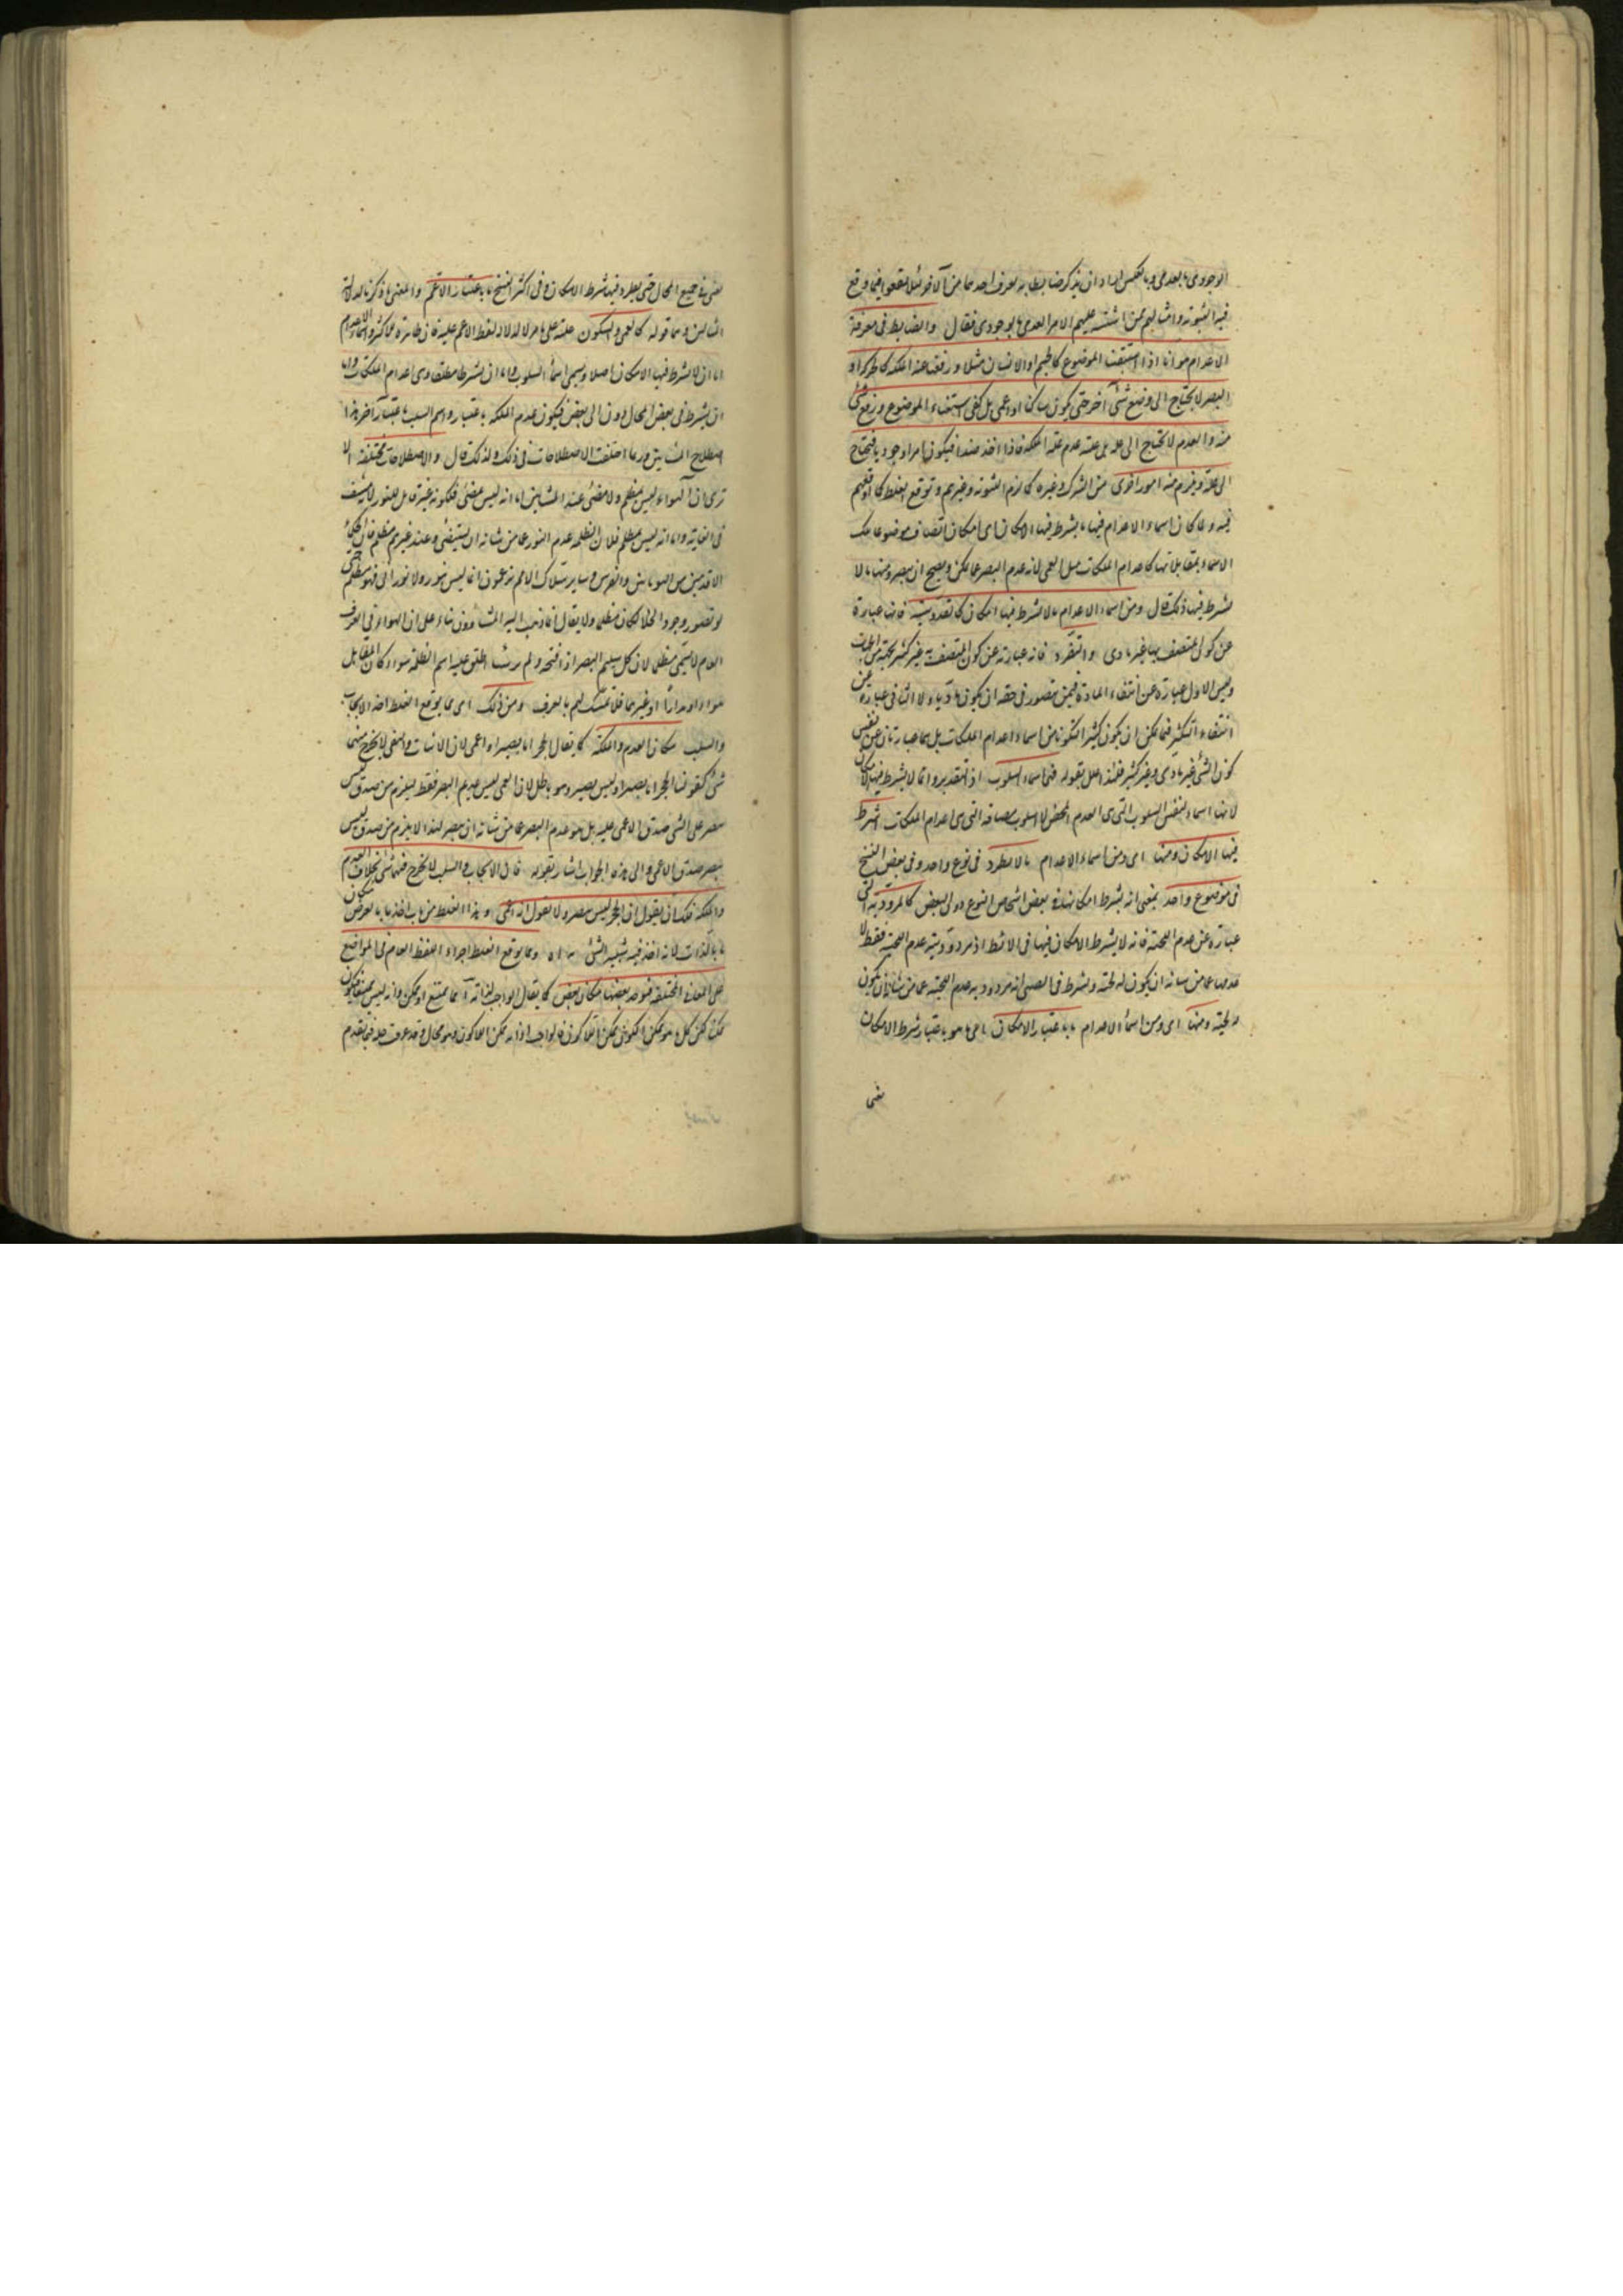 الوجودى بالعدمى وبالعكس اراد ان يذكر ضابطا به يعرف احدهما من الآخر لئلا يقعوا فيما وقع
فيه الثنوية وامثالهم ممن اشتبه عليهم الامر العدمى بالوجودى فقال والضابط فى معرفة
الاعدام هو انا اذا استبقينا الموضوع كالجسم او الانسان مثلا ورفعنا عنه الملكة كالحركة او
البصر لا يحتاج الى وضع شئ آخر حتى يكون ساكنا او اعمى بل كفى استبقاء الموضوع ورفع شئ
منه والعدم لا يحتاج الى علة بل علته عدم علة الملكة فاذا اخذ ضدا فيكون امرا وجوديا فيحتاج
الى علة ويلزم منه امور اخرى من الشرك وغيره كما لزم الثنوية وغيرهم وتوقع الغلط كما اوقعهم
فيه ولما كان اسماء الاعدام فيها ما يشترط فيها الامكان اى امكان اتصاف موضوعات تلك
الاسماء بمقابلاتها كاعدام الملكات مثل العمى لانه عدم البصر عما يمكن ويصح ان يبصر ومنها ما لا
يشترط فيها ذلك قال ومن اسماء الاعدام ما لا يشترط فيها امكان كالقدوسية فانها عبارة
عن كون المتصف بها غير مادى والتفرد فانه عبارة عن كون المتصف به غير كثير بجهة من الجهات
وليس الاول عبارة عن انتفاء المادة فيمن يتصور فى حقه ان يكون ماديا ولا الثانى عبارة عن
انتفاء التكثر فيما يمكن ان يكون كثيرا لتكونا من اسماء اعدام الملكات بل هما عبارتان عن نفس
كون الشئ غير مادى وغير كثير فلهذا علل بقوله فهى اسماء السلوب اذ التقدير وانما لا يشترط فيها الامكان
لانها اسماء لنفس السلوب التى هى العدم المحض لا لسلوب مضافة التى هى اعدام الملكات ليشترط
فيها الامكان ومنها اى ومن اسماء الاعدام ما لا يطرد فى نوع واحد وفى بعض النسخ
فى موضوع واحد بمعنى انه يشترط امكانها فى بعض اشخاص النوع دون البعض كالمرودية التى
عبارة عن عدم اللحية فانه لا يشترط الامكان فيها فى الانط اذ مرودويته عدم اللحية فقط لا
عدمها عما من شانه ان يكون له لحية ويشترط فى الصبى لانه مرودوديته عدم اللحية عما من شانه ان يكون
له لحية ومنها اى ومن اسماء الاعدام ما باعتبار الامكان اى ما هو باعتبار شرط الامكان
يعنى
يعنى فى جميع المحال حتى يطرد فيها شرط الامكان وفى اكثر النسخ ما باعتبار الاعم والمعنى ما ذكرنا لدلالة
المثالين وهما قوله كالعمى والسكون عليه على ما مر لا لدلالة لفظ الاعم عليه فانه ظاهره على كثرة اسماء الاعدام
اما ان لا يشترط فيها الامكان اصلا وتسمى اسماء السلوب واما ان يشترط مطلقا وهى اعدام الملكات واما
ان يشترط فى بعض المحال دون البعض فيكون عدم الملكة باعتبار واسم السلب باعتبار آخر هذا
اصطلاح المشائين وربما اختلفت الاصطلاحات فى ذلك ولذلك قال والاصطلاحات مختلفة الا
ترى ان الهواء ليس بمظلم ولا مضئ عند المشائين اما انه ليس بمضئ فلكونه غير قابل للنور لانه شفيف
فى الغاية واما انه ليس بمظلم فلان الظلمة عدم النور عما من شانه ان يستضئ وعند غيرهم مظلم فان الحكماء
الاقدمين من اليونانيين والفرس وسائر تلك الامم يزعمون انما ليس بنور ولا نورانى فهو مظلم حتى
لو تصور وجود الخلا لكان مظلما ولا يقال انما ذهب اليه المشاؤون بناء على ان الهواء فى العرف
العام لا يسمى مظلما لان كل سليم البصر اذا فتحه ولم ير شيئا اطلق عليه اسم الظلمة سواء كان المقابل
هواء او جدارا او غيرهما فلا تمسك لهم بالعرف ومن ذلك اى مما يوقع الغلط اخذ الايجاب
والسلب مكان العدم والملكة كما يقال الحجر اما بصير او اعمى لان الاثبات والنفى لا يخرج منهما
شئ كقولنا الحجر اما بصير او ليس ببصير وهو باطل لان العمى ليس عدم البصر فقط ليلزم من صدق ليس
ببصير على الشئ صدق الاعمى عليه بل هو عدم البصر عما من شانه ان يبصر لهذا لا يلزم من صدق ليس
ببصير صدق الاعمى والى هذا الجواب اشار بقوله فان الايجاب والسلب لا يخرج منهما شئ بخلاف العدم
والملكة فلك ان يقول ان الحجر ليس ببصير ولا تقول انه اعمى وهذا الغلط من باب اخذ ما بالعرض مكان
ما بالذات لانه اخذ فيه شبيه الشئ مكانه ومما يوقع الغلط اجراء اللفظ العام فى المواضع
على المعانى المختلفة فيوخذ بعضها مكان بعض كما يقال الواجب لذاته اما ممتنع او ممكن وانه ليس بممتنع فيكون
ممكنا لكن كل ما هو ممكن الكون ممكن اللاكون فالواجب اذا ممكن اللاكون وهو محال وقد عرفت حله فيما تقدم